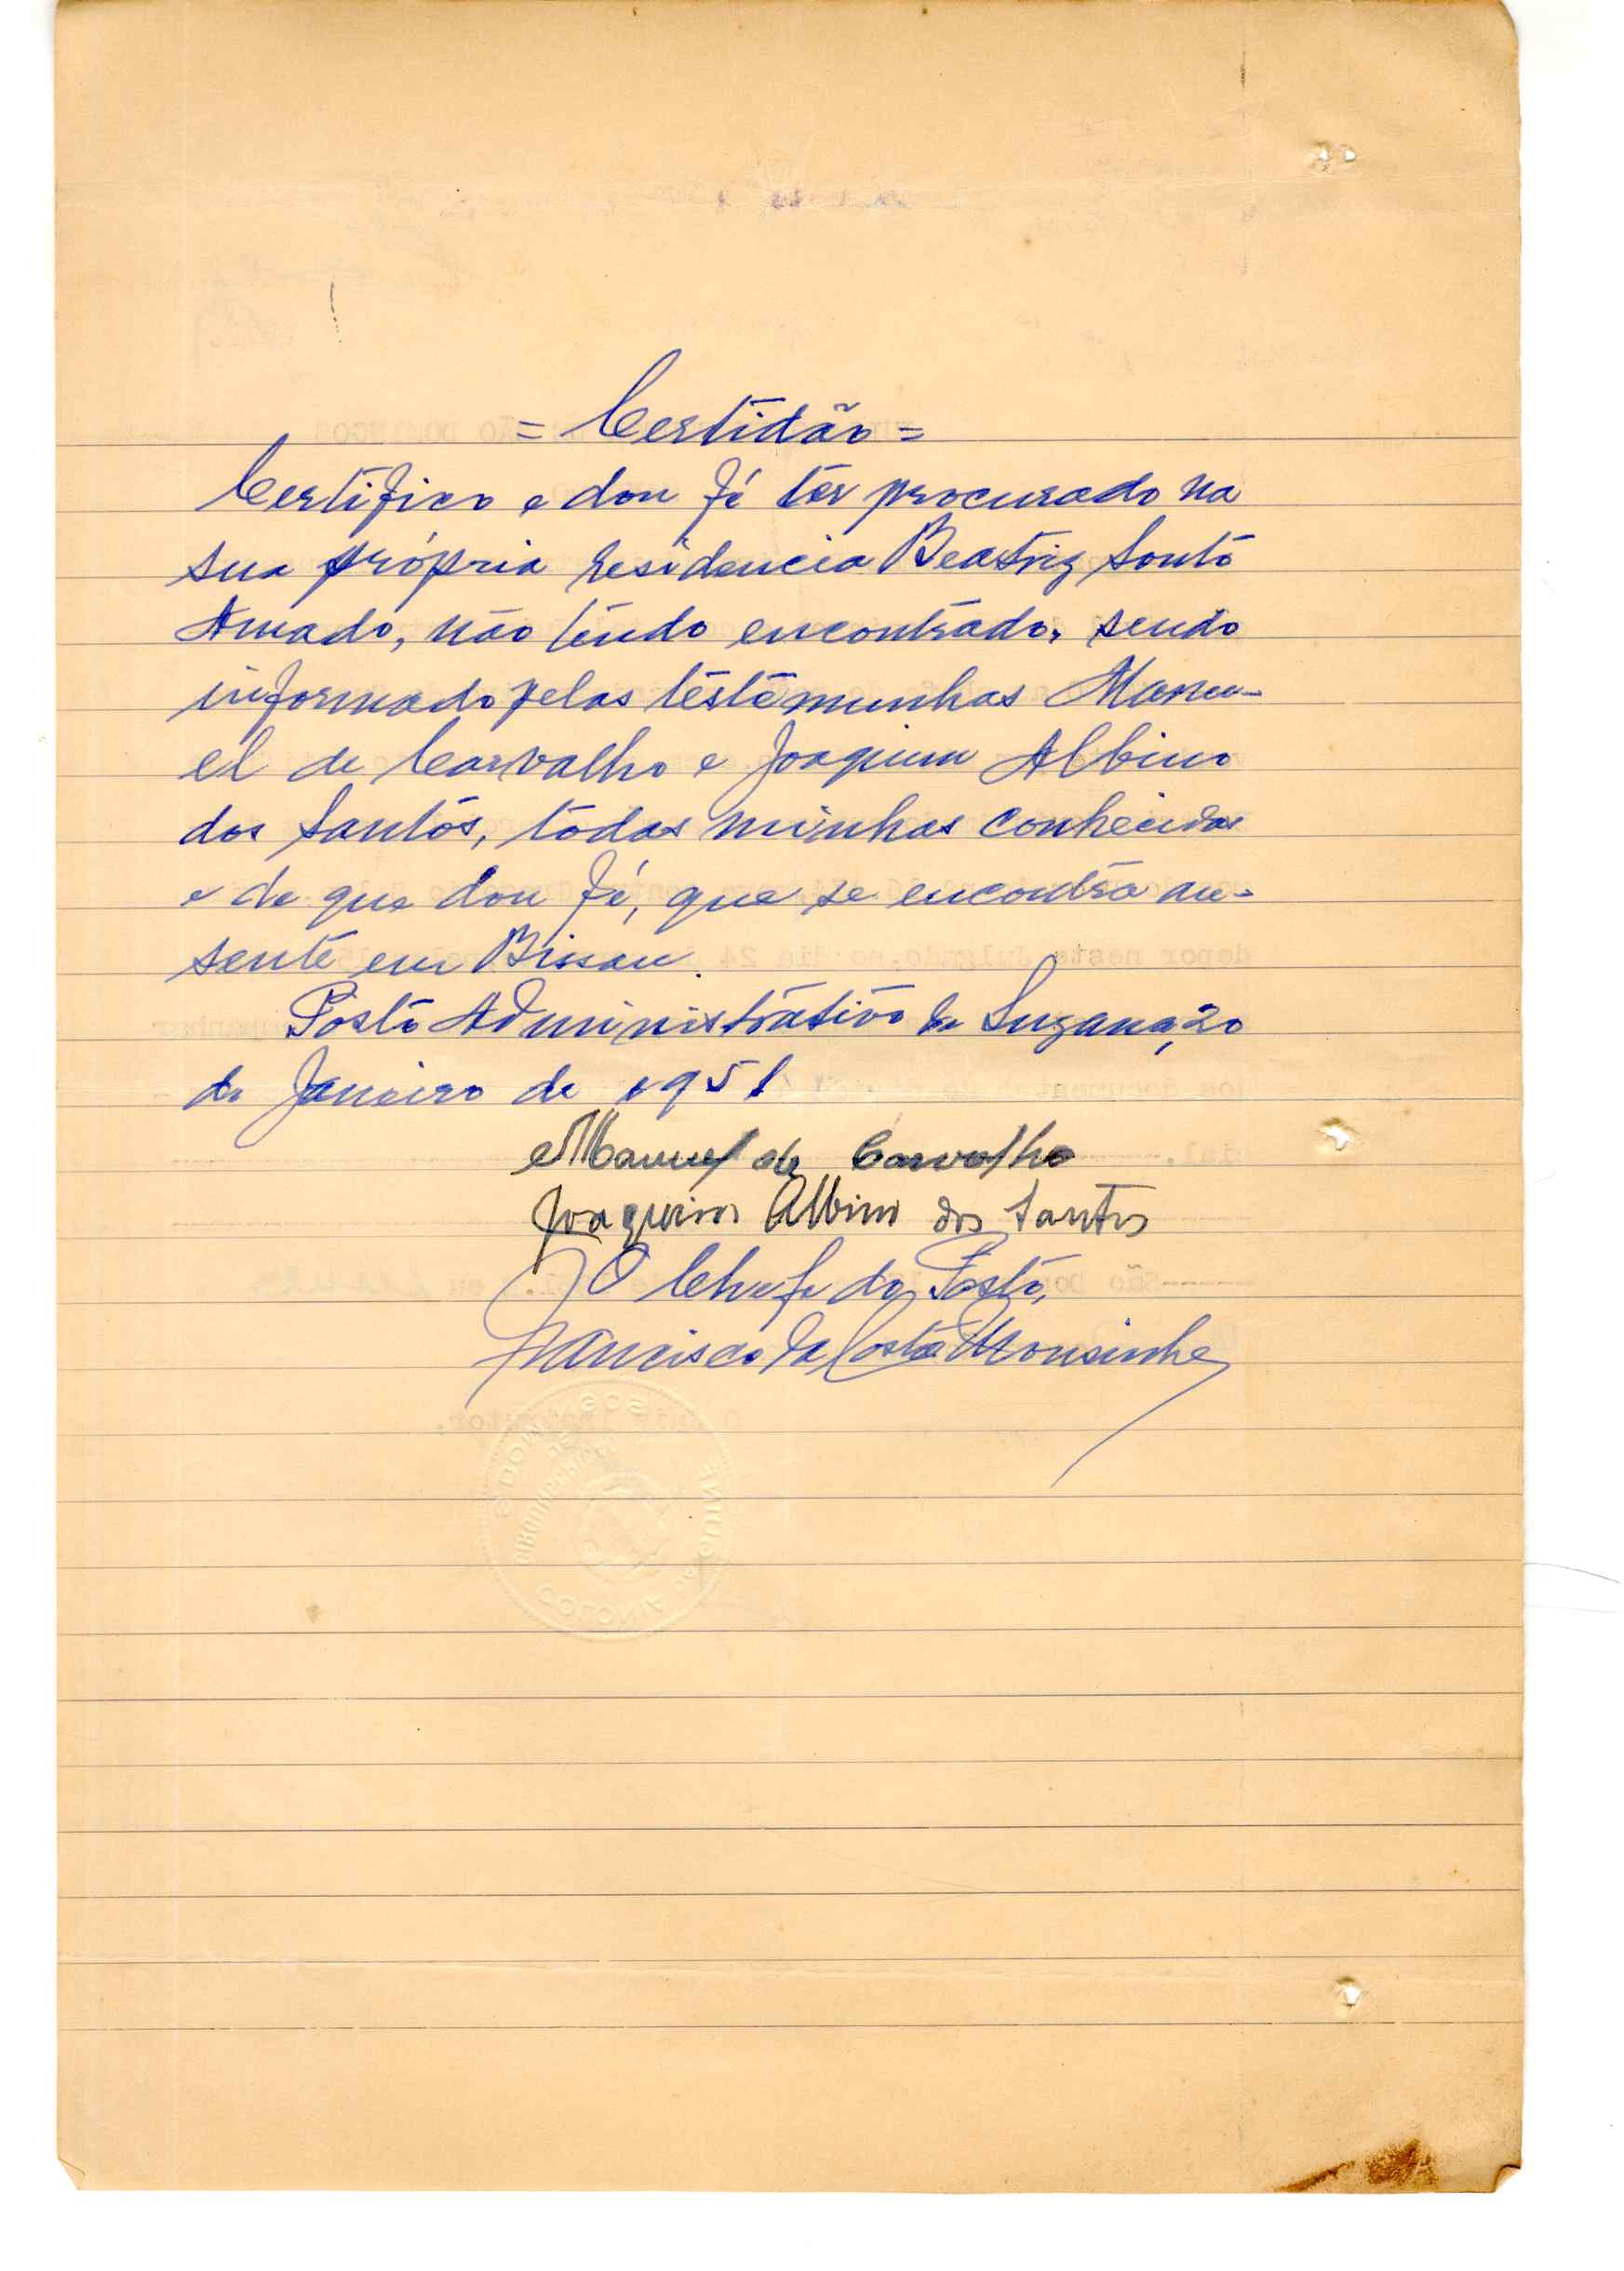 = Certidão =
Certifico e dou fé ter procurado na
sua própria residencia Beatriz Souto
Amado, não tendo encontrado, sendo
informado pelas testemunhas Manu-
el de Carvalho e Joaquim Albino
dos Santos, todas minhas conhecidas
e de que dou fé, que se encontra au-
sente em Bissau.
Posto Administrativo de Suzana, 20
de Janeiro de 1951
Manuel de Carvalho
Joaquim Albino dos Santos
O Chefe do Posto,
Francisco da Costa Monsinho